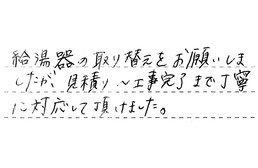 給湯器の取り替えをお願いしま
したが、見積り〜工事完了まで丁寧
に対応して頂けました。